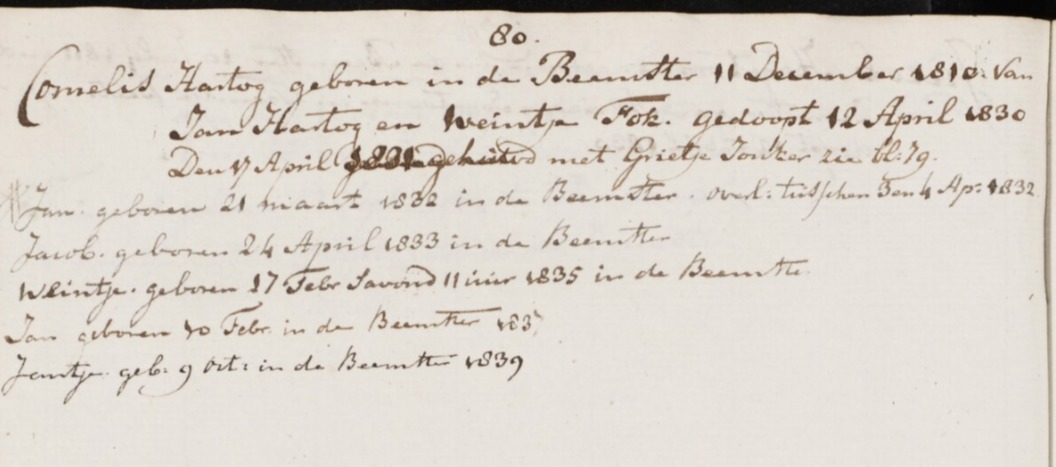 80.
Cornelis Hartog geboren in de Beemster 11 December 1810. van
Jan Hartog en Weintje Fok. gedoopt 12 April 1830
Den 17 April 1831 gehuwd met Grietje Jonker zie bl: 79.
Jan. geboren 21 maart 1832 in de Beemster. overl: tusschen 3 en 4 Ap: 1832.
Jacob. geboren 24 April 1833 in de Beemster
Weintje. geboren 17 Febr Savond 11 uur 1835 in de Beemster
Jan geboren 10 Febr. in de Beemster 1837
Jantje. geb: 9 oct: in de Beemster 1839